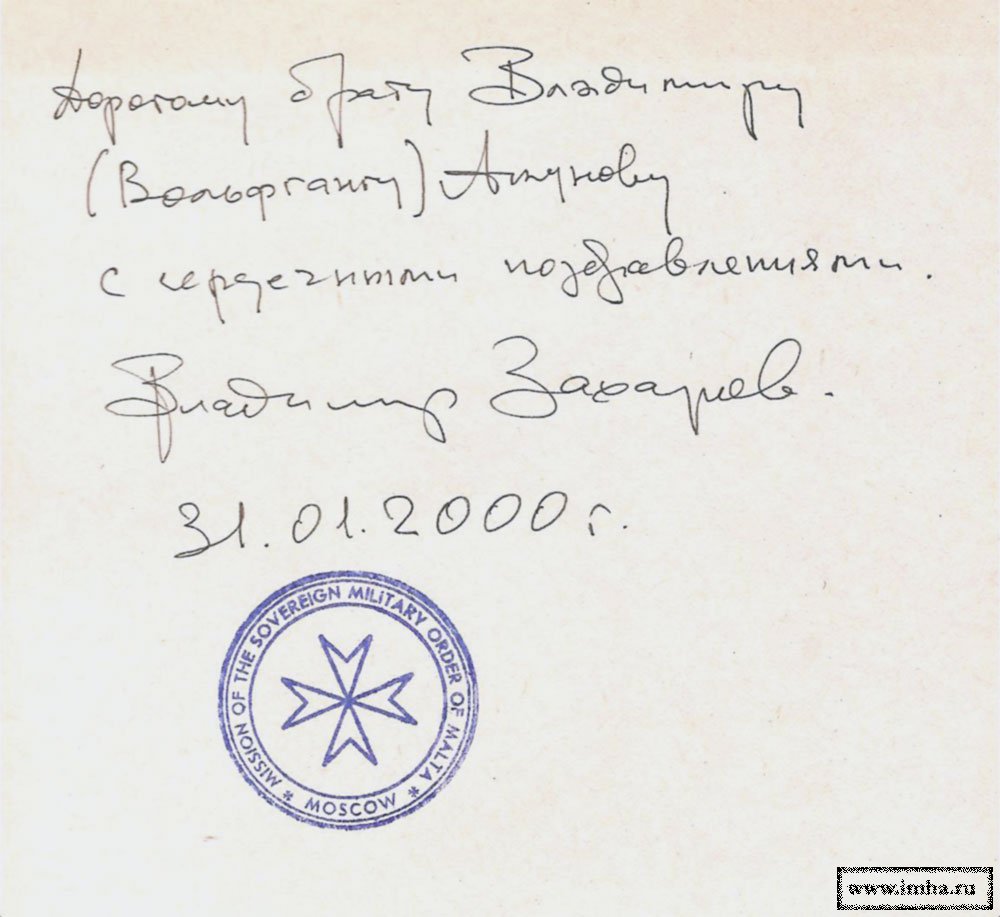 Дорогому брату Владимиру
(Вольфгангу) Акунову
с сердечными поздравлениями.
Владимир Захаров.
31.01.2000 г.
MISSION OF THE SOVEREIGN MILITARY ORDER OF MALTA
* MOSCOW *
www.imha.ru